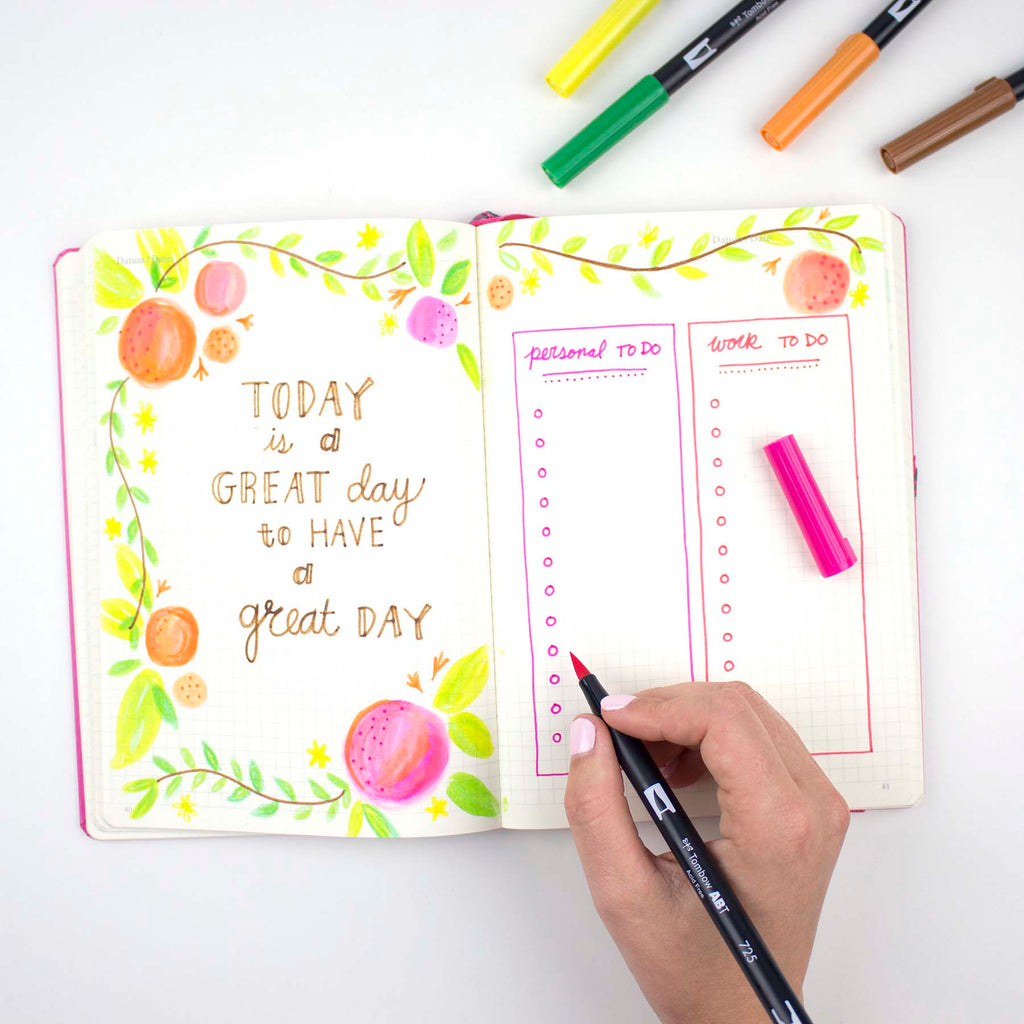 Tombow
Acid Free
Datum / Date:
Datum / Date:
TODAY
is a
GREAT day
to HAVE
a
great DAY
personal TO DO
work TO DO
80
81
Tombow ABT
Acid Free
725